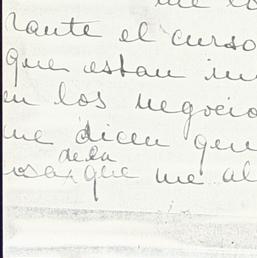 me lo
rante el curso
que estan in
en los negocio
me dicen que
de la
osa, que me al